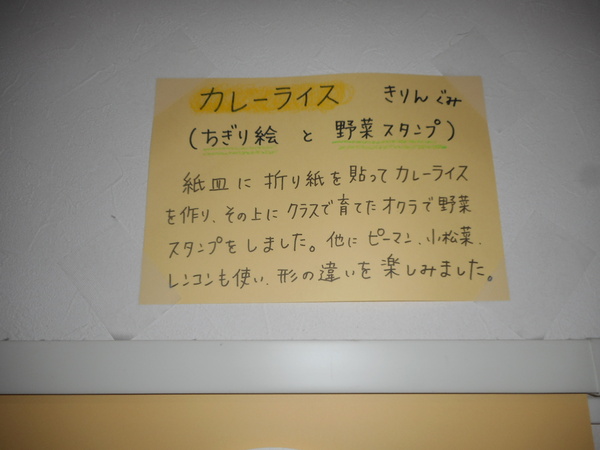 カレーライス きりんぐみ
(ちぎり絵 と 野菜スタンプ)
紙皿に折り紙を貼ってカレーライス
を作り、その上にクラスで育てたオクラで野菜
スタンプをしました。他にピーマン、小松菜、
レンコンも使い、形の違いを楽しみました。